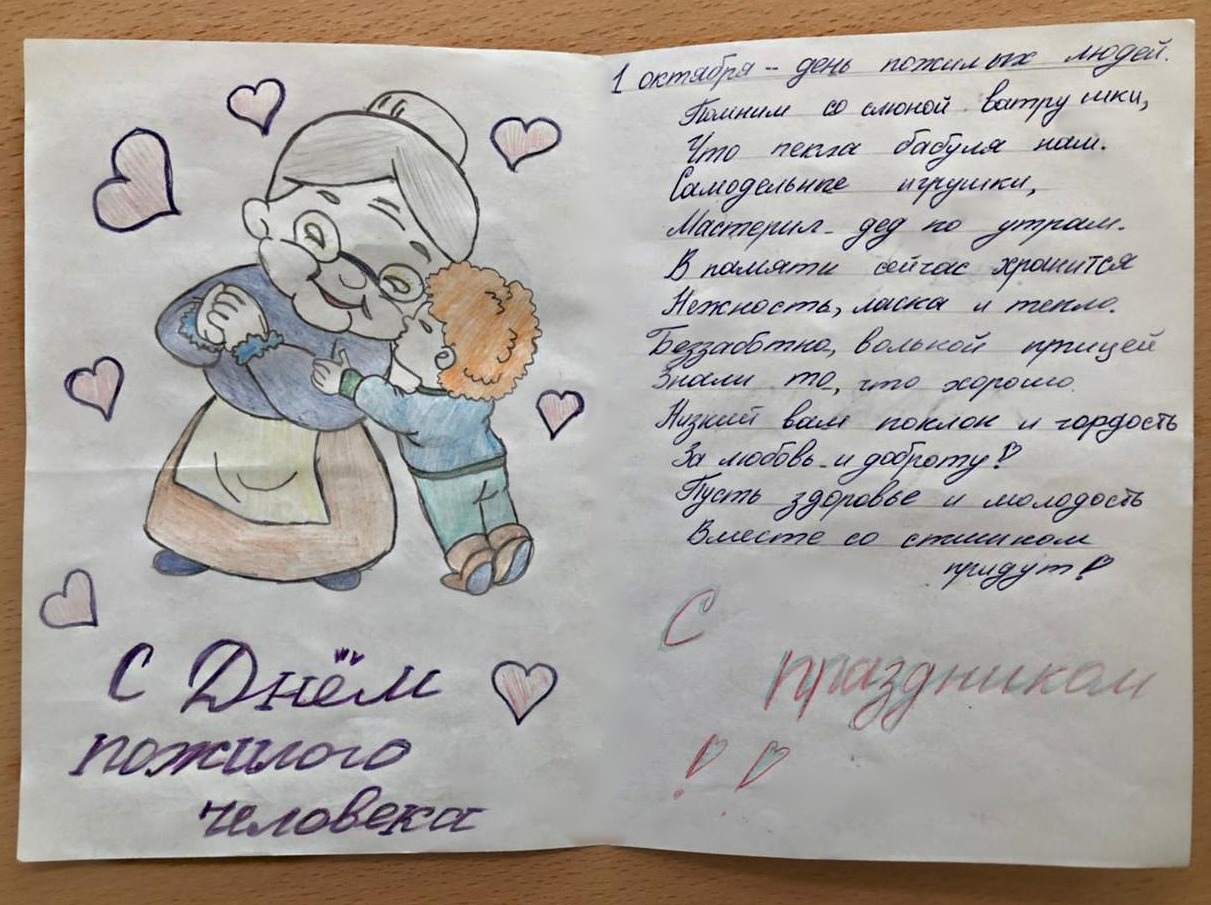 С Днём
пожилого
человека
1 октября - день пожилых людей.
Помним со слюной ватрушки,
Что пекла бабуля нам.
Самодельные игрушки,
Мастерил дед по утрам.
В памяти сейчас хранится
Нежность, ласка и тепло.
Беззаботно, волькой прицей
Знали то, что хорошо.
Низкий вам поклон и гордость
За любовь и доброту!
Пусть здоровье и молодость
Вместе со стишком
придут!
С
праздником
!!